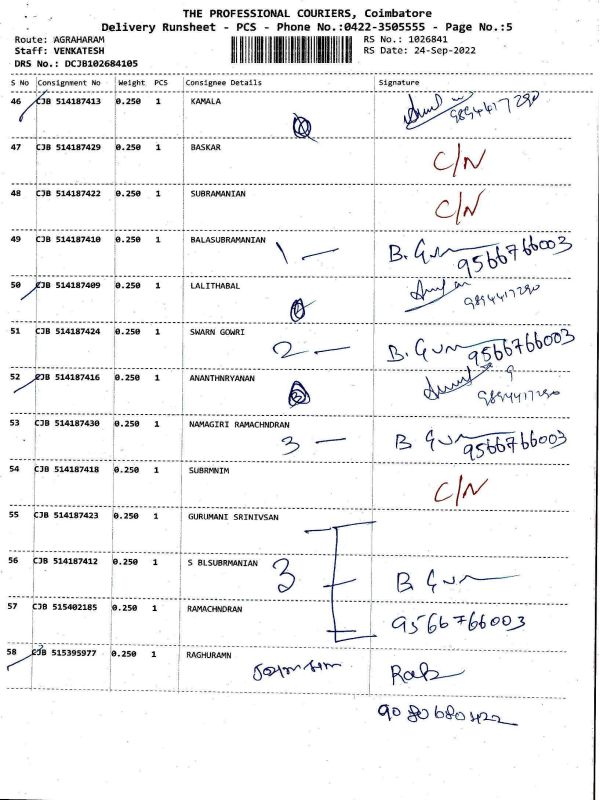 THE PROFESSIONAL COURIERS, Coimbatore
Delivery Runsheet - PCS - Phone No.:0422-3505555 - Page No.:5
Route: AGRAHARAM RS No.: 1026841
Staff: VENKATESH RS Date: 24-Sep-2022
DRS No.: DCJB102684105
S No Consignment No Weight PCS Consignee Details Signature
46 CJB 514187413 0.250 1 KAMALA
9894417290
47 CJB 514187429 0.250 1 BASKAR C/N
48 CJB 514187422 0.250 1 SUBRAMANIAN C/N
49 CJB 514187410 0.250 1 BALASUBRAMANIAN 1 –
9566766003
50 CJB 514187409 0.250 1 LALITHABAL
9894417290
51 CJB 514187424 0.250 1 SWARN GOWRI 2 –
9566766003
52 CJB 514187416 0.250 1 ANANTHNRYANAN
9894417290
53 CJB 514187430 0.250 1 NAMAGIRI RAMACHNDRAN 3 –
9566766003
54 CJB 514187418 0.250 1 SUBRMNIM C/N
55 CJB 514187423 0.250 1 GURUMANI SRINIVSAN
56 CJB 514187412 0.250 1 S BLSUBRMANIAN 3
57 CJB 515402185 0.250 1 RAMACHNDRAN 9566766003
58 CJB 515395977 0.250 1 RAGHURAMN
9080680422